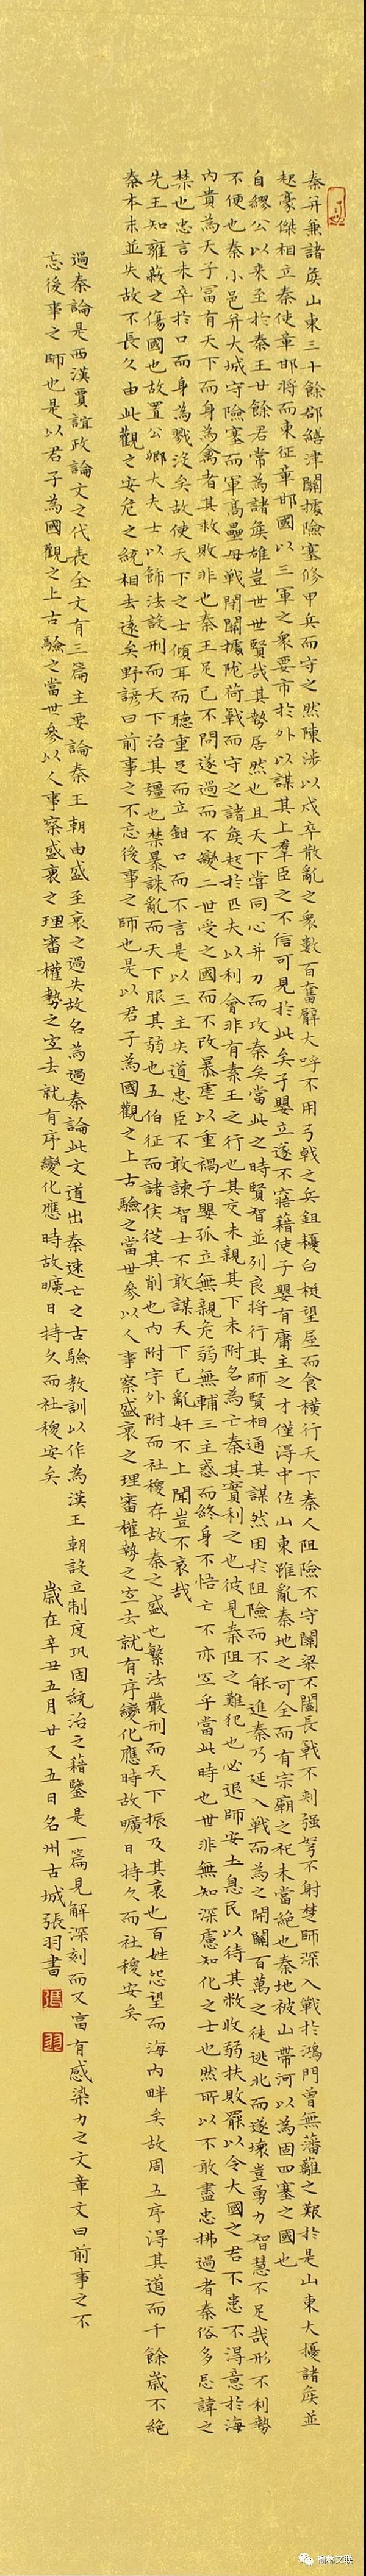 秦并兼諸矦山東三十餘郡繕津關據險塞修甲兵而守之然陳涉以戍卒散亂之衆數百奮臂大呼不用弓戟之兵鉏耰白梃望屋而食橫行天下秦人阻險不守關梁不闔長戟不刺强弩不射楚師深入戰於鴻門曾無藩蘺之艱於是山東大擾諸矦並
起豪傑相立秦使章邯將而東征章邯國以三軍之衆要市於外以謀其上羣臣之不信可見於此矣子嬰立遂不寤藉使子嬰有庸主之才僅得中佐山東雖亂秦地之可全而有宗廟之祀未當絕也秦地被山帶河以為固四塞之國也
自繆公以來至於秦王廿餘君常為諸矦雄豈世世賢哉其勢居然也且天下當同心并力而攻秦矣當此之時賢智並列良將行其師賢相通其謀然困於阻險而不能進秦乃延入戰而為之開關百萬之徒逃北而遂壞豈勇力智慧不足哉形不利勢
不便也秦小邑并大城守險塞而軍高壘毋戰閉關據阨荷戟而守之諸矦起於匹夫以利會非有素王之行也其交未親其下未附名為亡秦其實利之也彼見秦阻之難犯也必退師安土息民以待其敝收弱扶敗罷以令大國之君不患不得意於海
內貴為天子富有天下而身為禽者其救敗非也秦王足已不問遂過而不變二世受之國而不改暴虐以重禍子嬰孤立無親危弱無輔三主惑而終身不悟亡不亦宜乎當此時也世非無知深慮知化之士也然所以不敢盡忠拂過者秦俗多忌諱之
禁也忠言未卒於口而身為戮沒矣故使天下之士傾耳而聽重足而立鉗口而不言是以三主失道忠臣不敢諫智士不敢謀天下已亂奸不上聞豈不哀哉
先王知雍蔽之傷國也故置公卿大夫士以飾法設刑而天下治其彊也禁暴誅亂而天下服其弱也五伯征而諸侯從其削也內附字外附而社稷存故秦之盛也繁法嚴刑而天下振及其衰也百姓怨望而海內畔矣故周五序得其道而千餘歲不絕
秦本末並失故不長久由此觀之安危之統相去遠矣野諺曰前事之不忘後事之師也是以君子為國觀之上古驗之當世參以人事察盛衰之理審權勢之宜去就有序變化應時故曠日持久而社稷安矣
過秦論是西漢賈誼政論文之代表全文有三篇主要論秦王朝由盛至衰之過失故名為過秦論此文道出秦速亡之古驗教訓以作為漢王朝設立制度巩固統治之藉鑒是一篇見解深刻而又富有感染力之文章文曰前事之不
忘後事之師也是以君子為國觀之上古驗之當世參以人事察盛衰之理審權勢之宜去就有序變化應時故曠日持久而社稷安矣 歲在辛丑五月廿又五日名州古城張羽書
張
羽
榆林文联